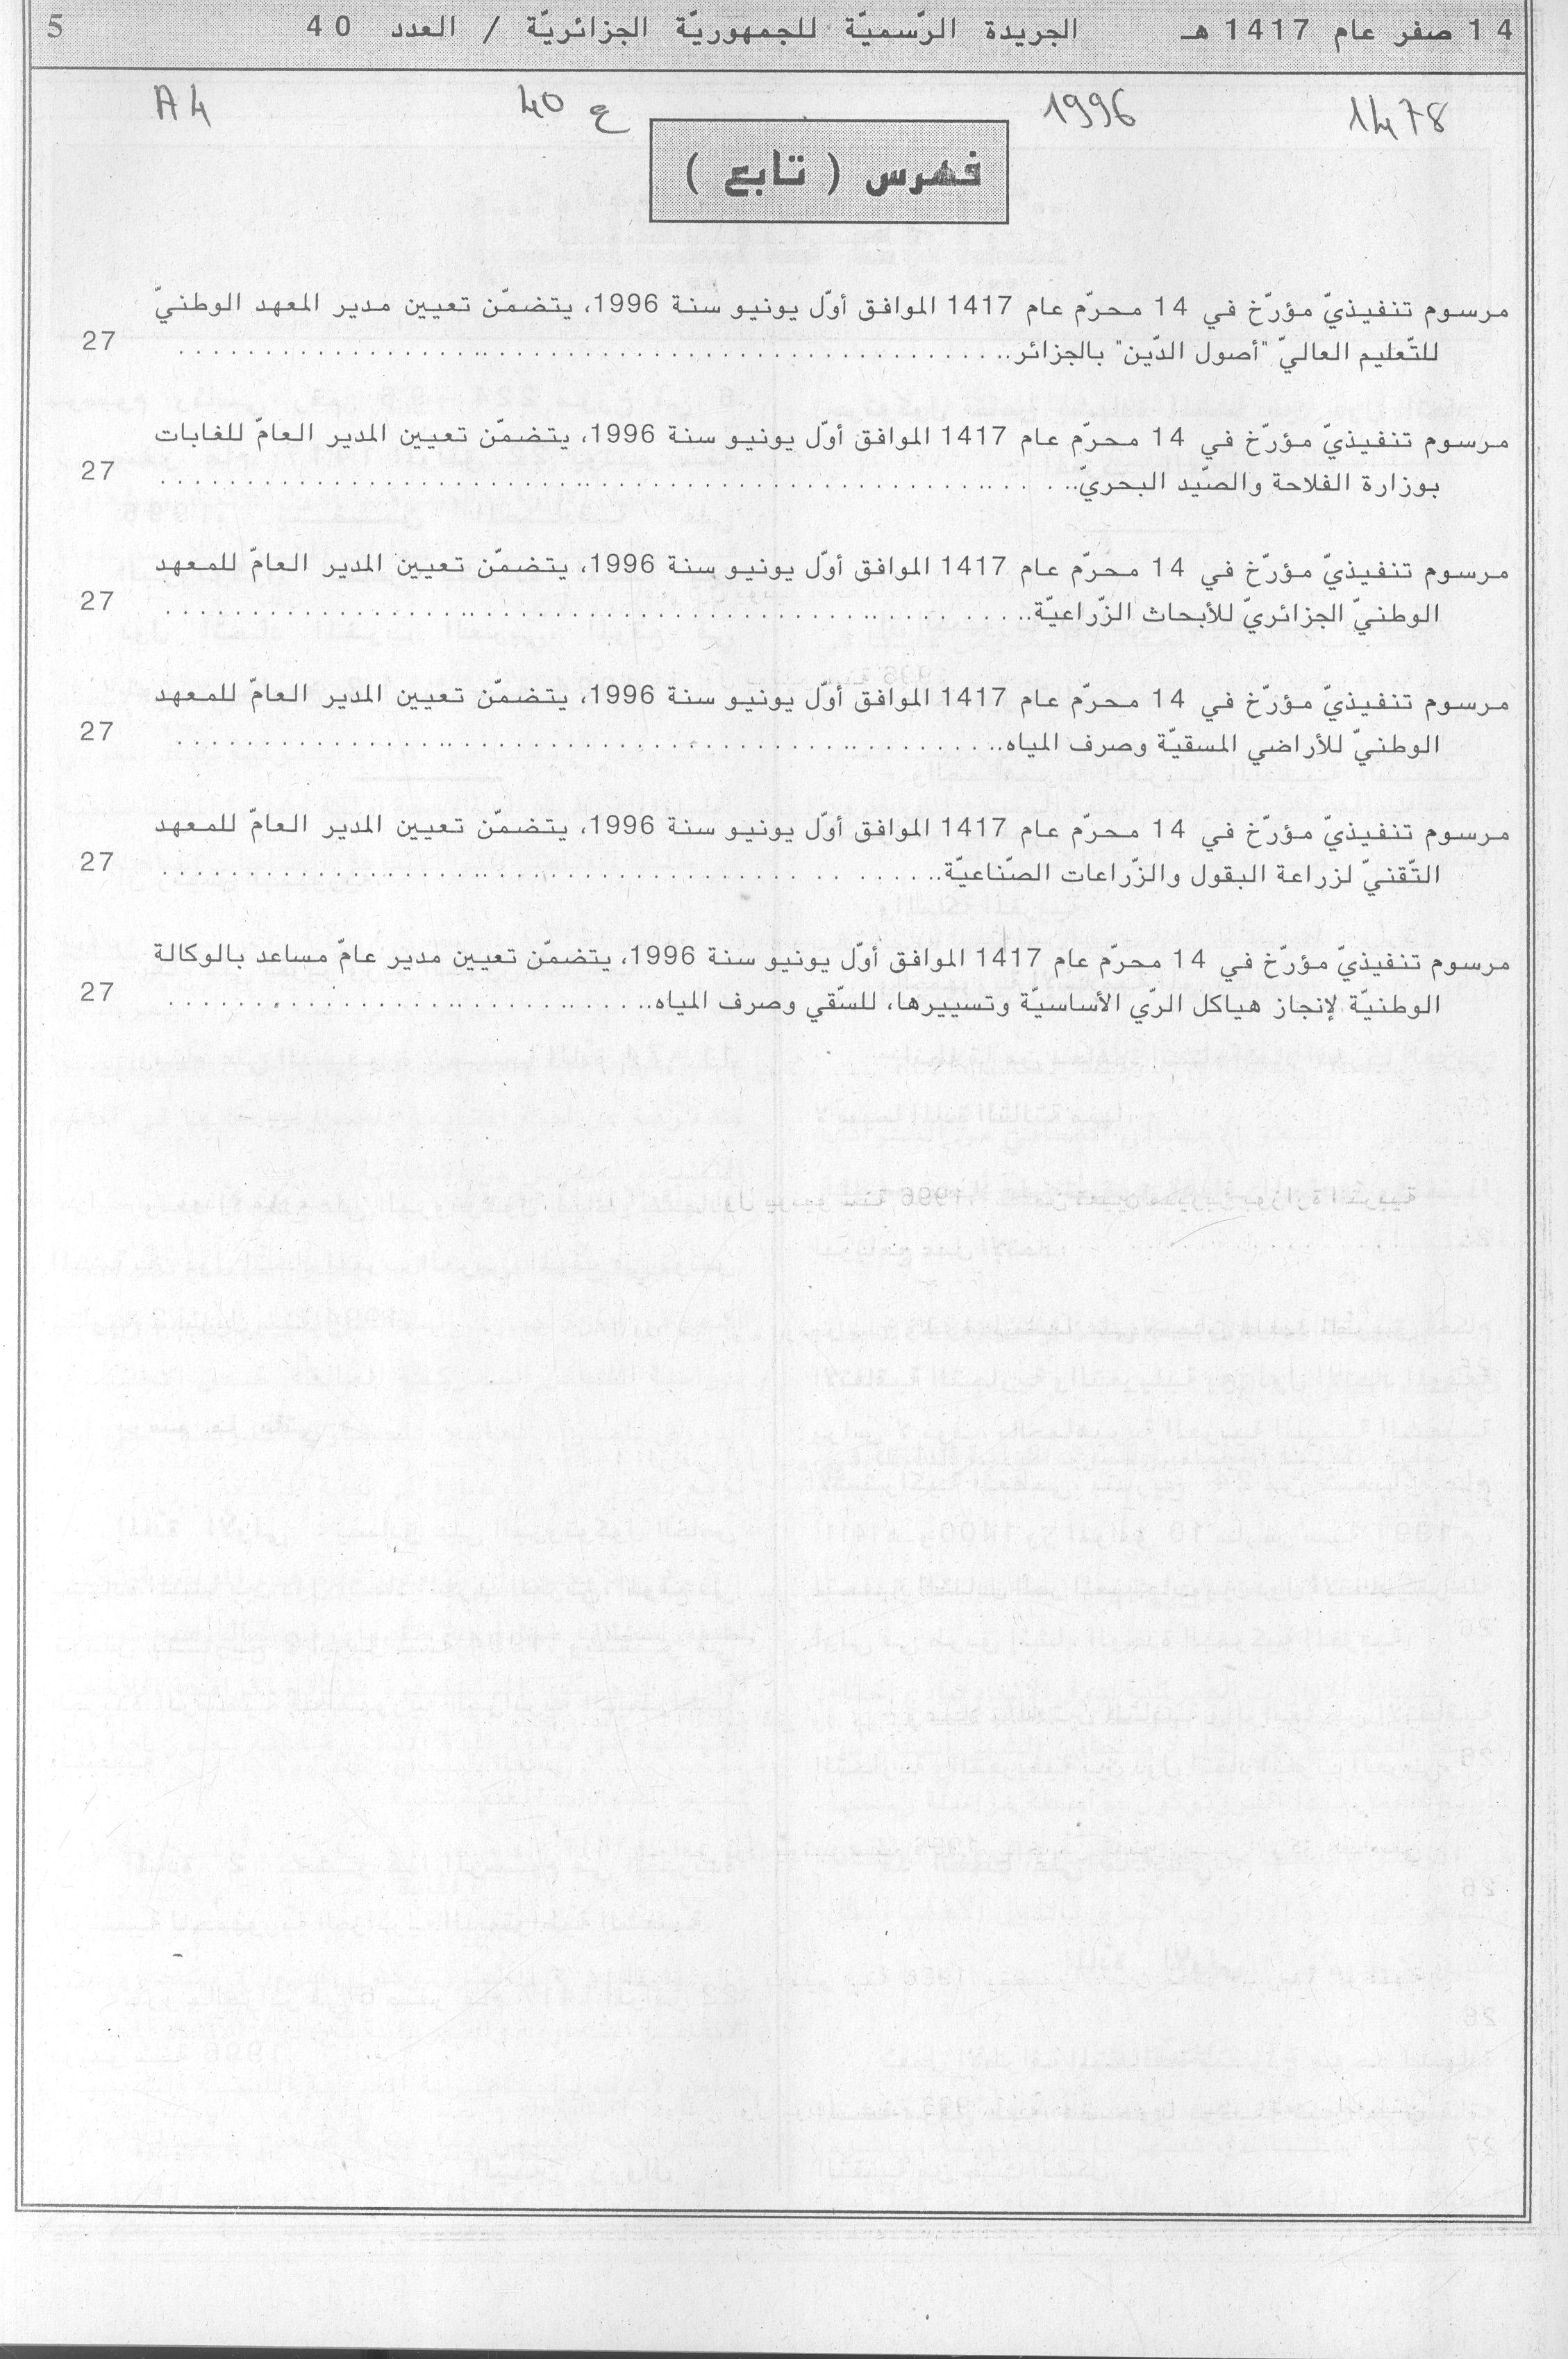 14 صفر عام 1417 هـ الجريدة الرّسميّة للجمهوريّة الجزائريّة / العدد 40 5
1478 1996 ع 40 A4
فهرس ( تابع )
مرسوم تنفيذيّ مؤرّخ في 14 محرّم عام 1417 الموافق أوّل يونيو سنة 1996، يتضمّن تعيين مدير المعهد الوطنيّ
للتّعليم العاليّ "أصول الدّين" بالجزائر.......... 27
مرسوم تنفيذيّ مؤرّخ في 14 محرّم عام 1417 الموافق أوّل يونيو سنة 1996، يتضمّن تعيين المدير العامّ للغابات
بوزارة الفلاحة والصّيد البحريّ.......... 27
مرسوم تنفيذيّ مؤرّخ في 14 محرّم عام 1417 الموافق أوّل يونيو سنة 1996، يتضمّن تعيين المدير العامّ للمعهد
الوطنيّ الجزائريّ للأبحاث الزّراعيّة.......... 27
مرسوم تنفيذيّ مؤرّخ في 14 محرّم عام 1417 الموافق أوّل يونيو سنة 1996، يتضمّن تعيين المدير العامّ للمعهد
الوطنيّ للأراضي المسقيّة وصرف المياه.......... 27
مرسوم تنفيذيّ مؤرّخ في 14 محرّم عام 1417 الموافق أوّل يونيو سنة 1996، يتضمّن تعيين المدير العامّ للمعهد
التّقنيّ لزراعة البقول والزّراعات الصّناعيّة.......... 27
مرسوم تنفيذيّ مؤرّخ في 14 محرّم عام 1417 الموافق أوّل يونيو سنة 1996، يتضمّن تعيين مدير عامّ مساعد بالوكالة
الوطنيّة لإنجاز هياكل الرّي الأساسيّة وتسييرها، للسّقي وصرف المياه.......... 27